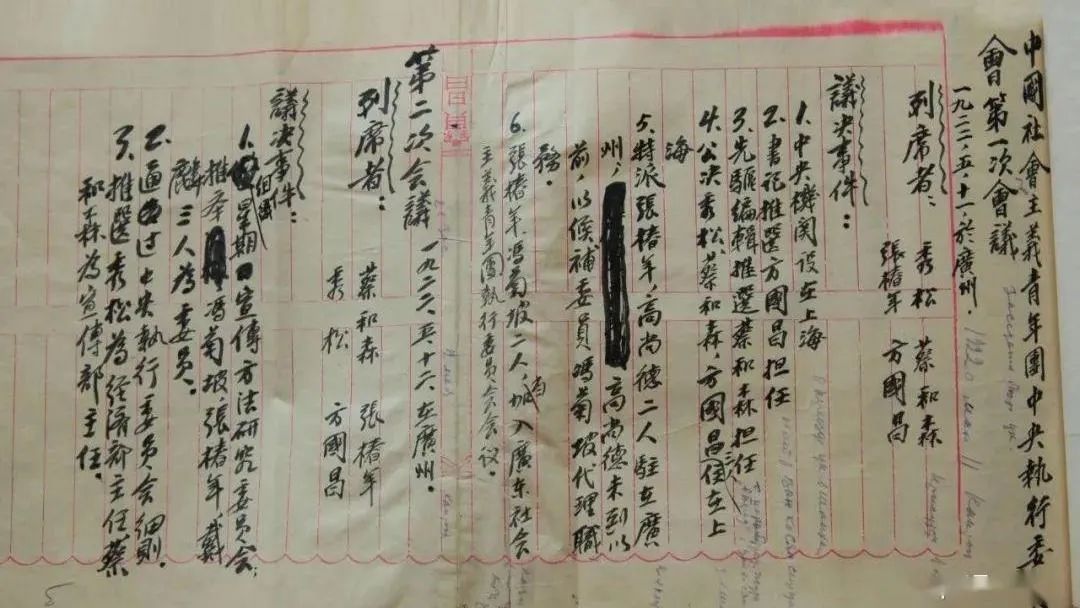 中國社會主義青年團中央執行委
會第一次會議
一九二二，五，十一，於廣州．
列席者：
秀松 蔡和森
張椿年 方國昌
議決事件：
1. 中央機関設在上海
2. 書记推選方國昌担任
3. 先駆编輯推選蔡和森担任
4. 公决秀松，蔡和森，方國昌三人住在上
海
5. 特派張椿年，高尚德二人駐在廣
州， 高尚德未到以
前，以候補委員馮菊坡代理職
務．
6. 張椿年馮菊坡二人為加入廣东社会
主義青年團執行委員会会议．
第二次会議
一九二二，五，十二．在廣州．
列席者：
蔡和森 張椿年
秀松 方國昌
議决事件：
1. 组織星期日宣傳方法研究委員会；
推本 馮菊坡，張椿年戴
三人為委员．
2. 通过中央執行委员会细则．
3. 推選秀松為经济部主任蔡
和森為宣傳部主任．